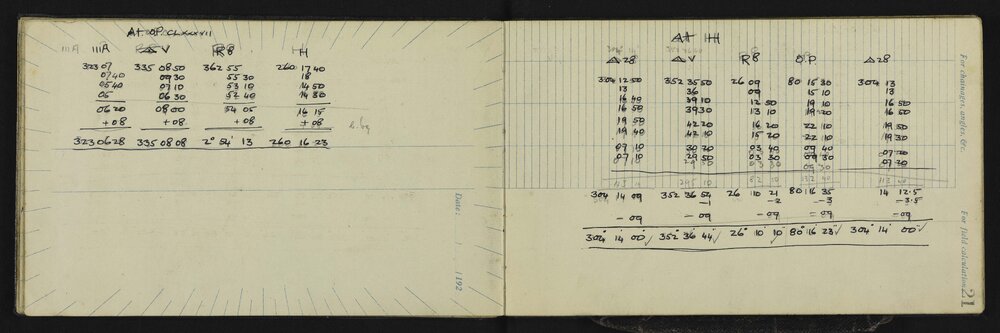 At OP. CLXXXVII
IIIA IIIA Δ V R8 H
323 07 335 08 50 362 55 260 17 40
07 40 09 30 55 30 18
05 40 07 10 53 10 14 50
06 06 30 52 40 14 30
06 20 08 00 54 05 16 15
+08 +08 +08 +08
323 06 28 335 08 08 2° 54' 13 260 16 23
Date: 1192
At H
Δ 28 Δ V R8 O.P Δ 28
304 12 50 352 35 50 26 09 80 15 30 304 13
13 36 09 15 10 13
16 40 39 10 12 50 19 10 16 50
16 50 39 30 13 10 19 20 16 50
19 50 42 20 16 20 22 10 19 50
19 40 42 10 15 20 22 10 19 30
07 10 30 20 03 40 09 40 07 20
07 10 29 50 03 30 09 30 07 20
304 14 09 352 36 54 26 10 21 80 16 35 14 12.5
-1 -2 -3 -3.5
-09 -09 -09 -09 -09
304° 14 00 352° 36 44 26° 10 10 80° 16 23 304° 14 00
For chainages, angles, &c.
For field calculations
21